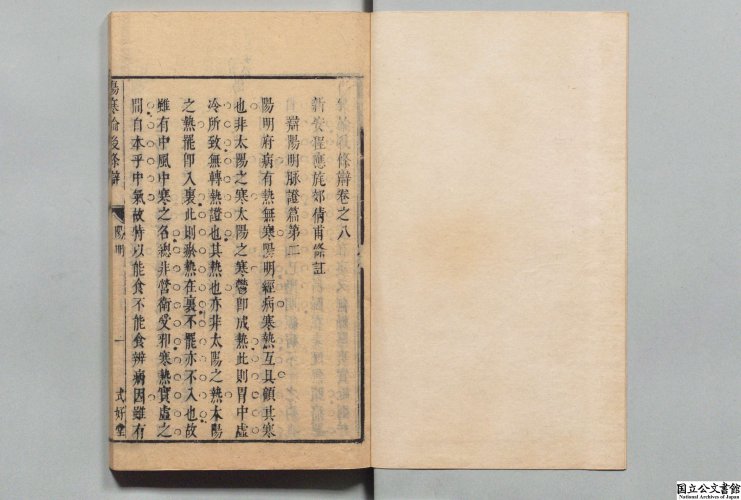 傷寒論後條辯卷之八
新安程應旄郊倩甫條註
辯陽明脉證篇第二
陽明府病有熱無寒陽明經病寒熱互具顧其寒
也非太陽之寒太陽之寒鬱卽成熱此則胃中虛
冷所致無轉熱證也其熱也亦非太陽之熱太陽
之熱罷卽入裏此則瘀熱在裏不罷亦不入也故
雖有中風中寒之名總非營衛受邪寒熱實虛之
間自本乎中氣故特以能食不能食辨病因雖有
傷寒論後條辯
陽明
一
式好堂
国立公文書館
National Archives of Japan